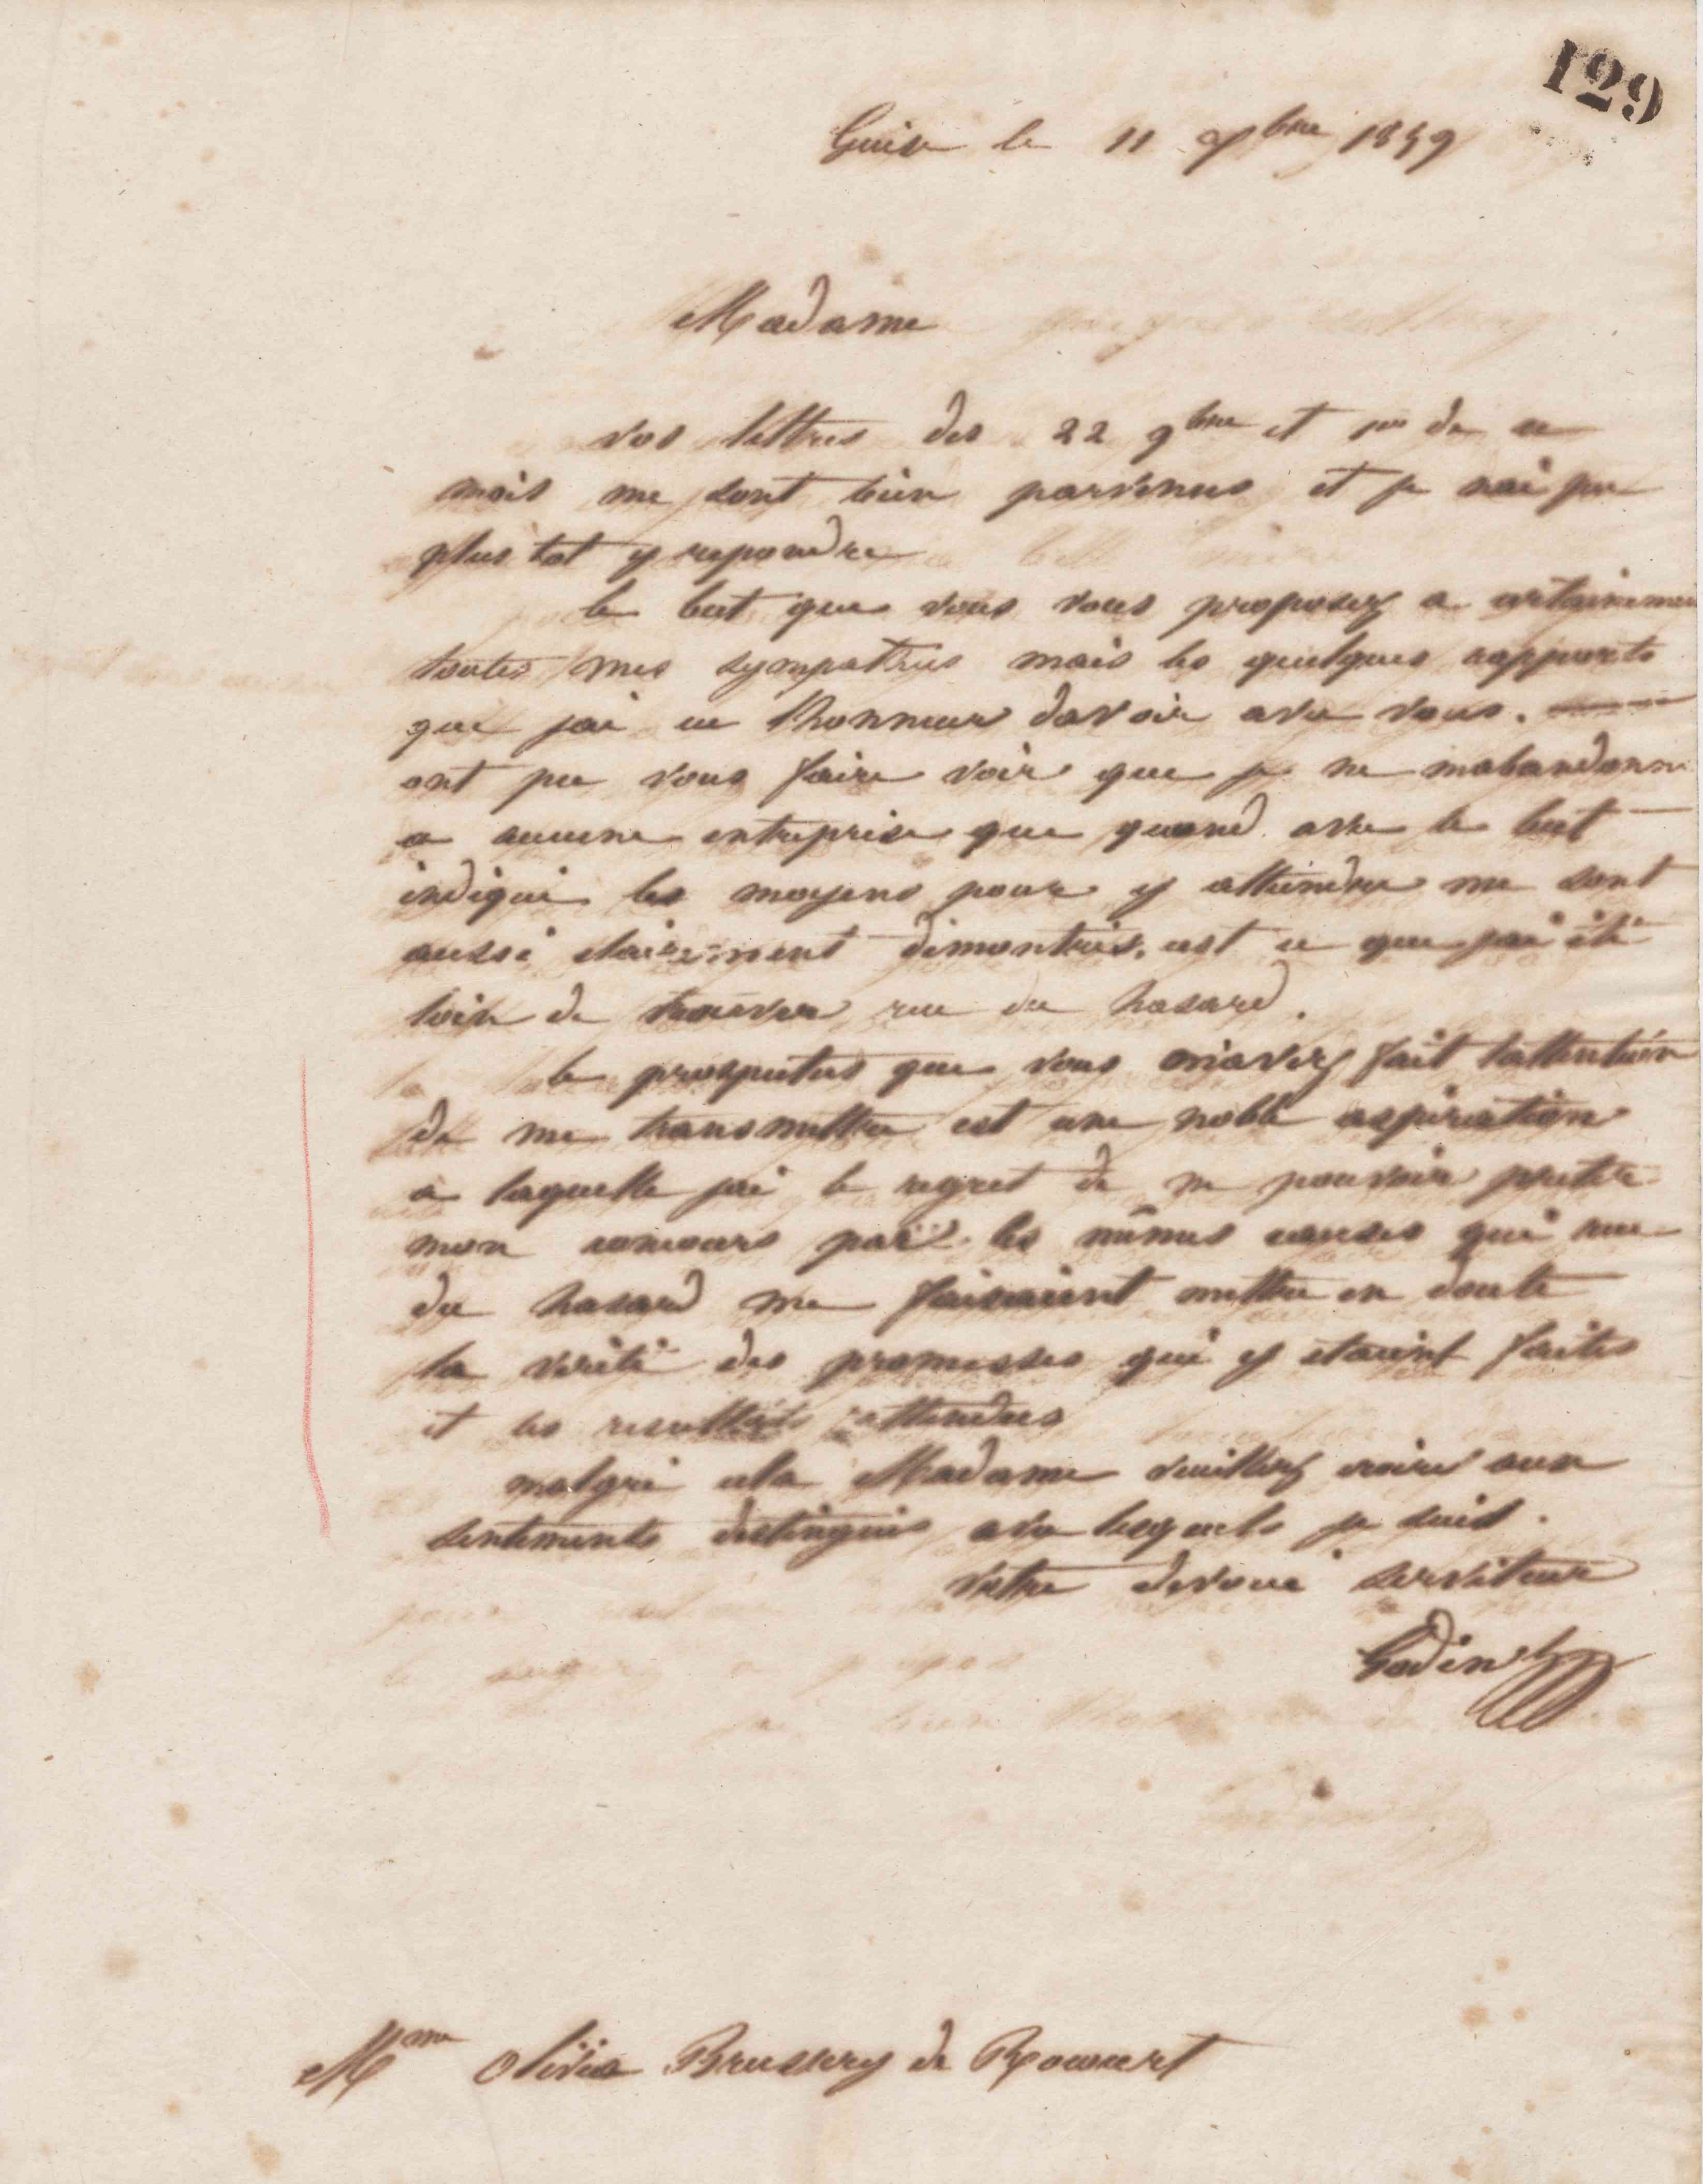 129
Guise le 11 Xbre 1859
Madame
vos lettres des 22 9bre et 1er de ce
mois me sont bien parvenus et je nai pu
plus tot y repondre
le but que vous vous proposez a certainemen
toutes mes sympathies mais les quelques rapports
que jai eu lhonneur davoir avec vous.
ont pu vous faire voir que je ne mabandonne
a aucune entreprise que quand avec le but
indiqué les moyens pour y atteindre me sont
aussi clairement démontrés. cest ce que jai été
loin de trouver rue du hasard.
le prospectus que vous m'avez fait lattention
de me transmettre est une noble aspiration
a laquelle jai le regret de ne pouvoir preter
mon concours par les mêmes causes qui rue
du hasard me faisaient mettre en doute
la vérité des promesses qui y etaient faites
et les resultats attendus
malgré cela Madame veuillez croire aux
sentiments distingués avec lesquels je suis.
votre devoué serviteur
Godin
Mme Olivia Brussery de Rocourt